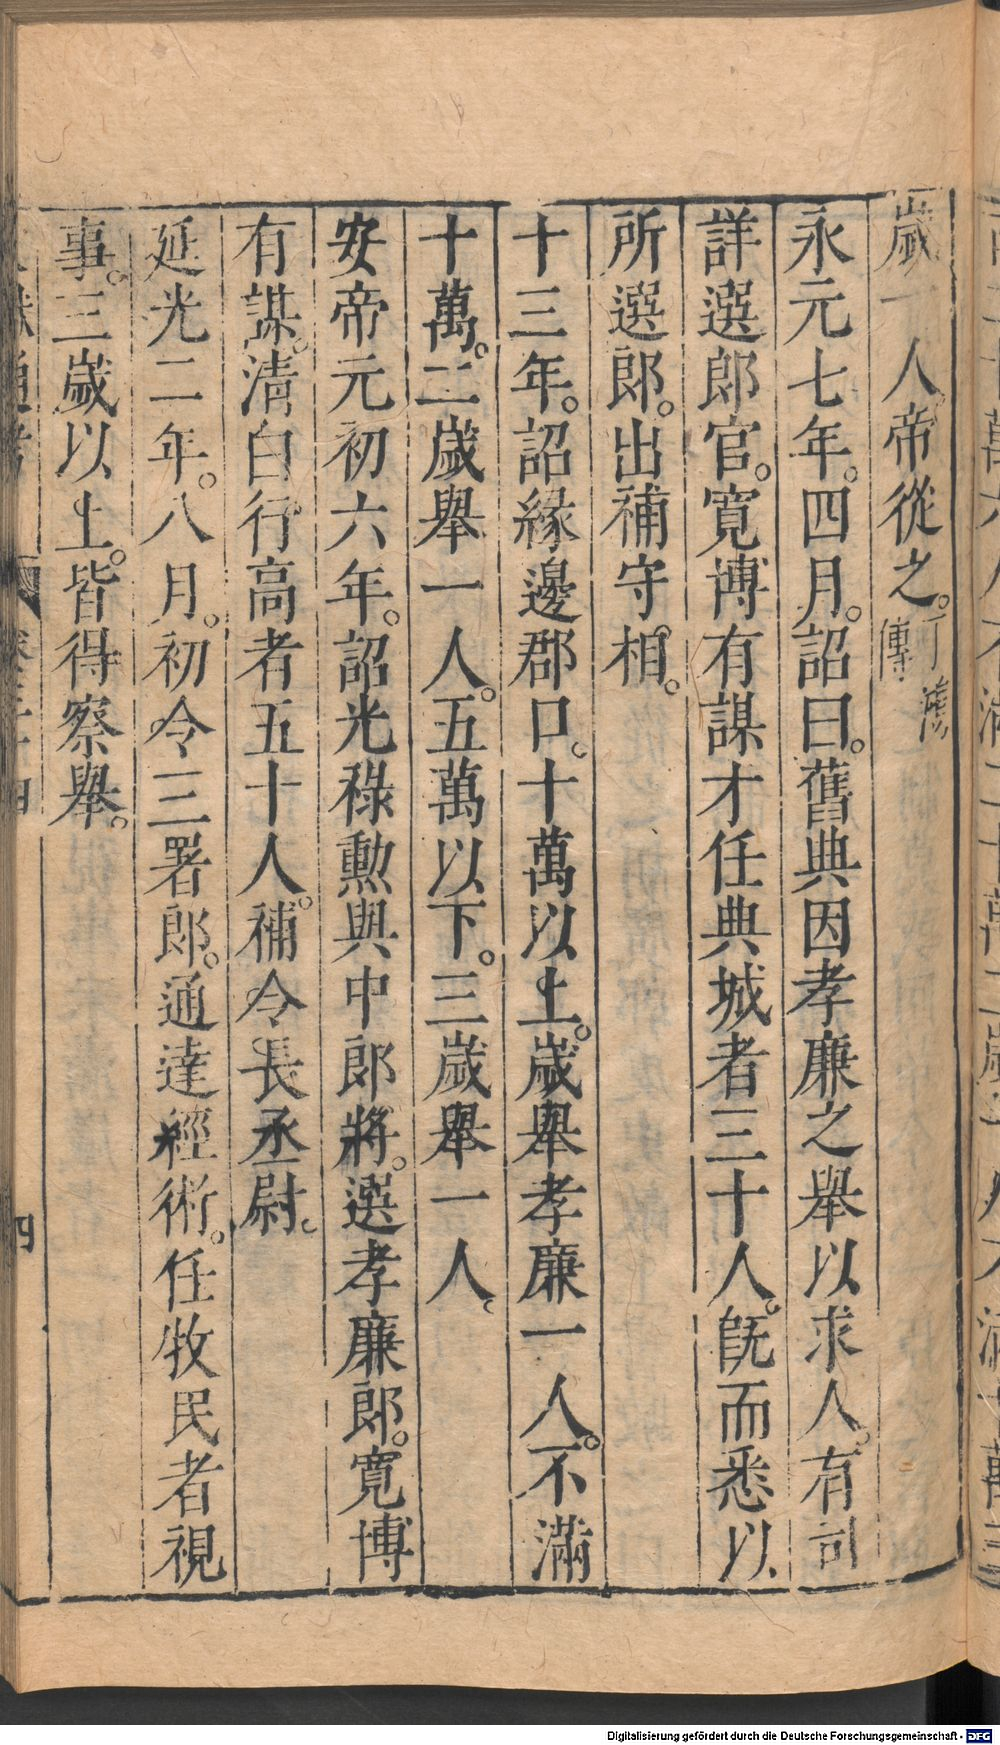 歲一人帝從之。丁鴻傳
永元七年。四月。詔曰。舊典因孝廉之舉以求人。有司
詳選郎官。寬博有謀才任典城者三十人。旣而悉以
所選郎。出補守相。
十三年。詔緣邊郡口。十萬以上。歲舉孝廉一人。不滿
十萬。二歲舉一人。五萬以下。三歲舉一人。
安帝元初六年。詔光祿勳與中郎將。選孝廉郎。寬博
有謀。清白行高者五十人。補令長丞尉。
延光二年。八月。初令三署郎。通達經術。任牧民者視
事。三歲以上。皆得察舉。
四
Digitalisierung gefördert durch die Deutsche Forschungsgemeinschaft - DFG